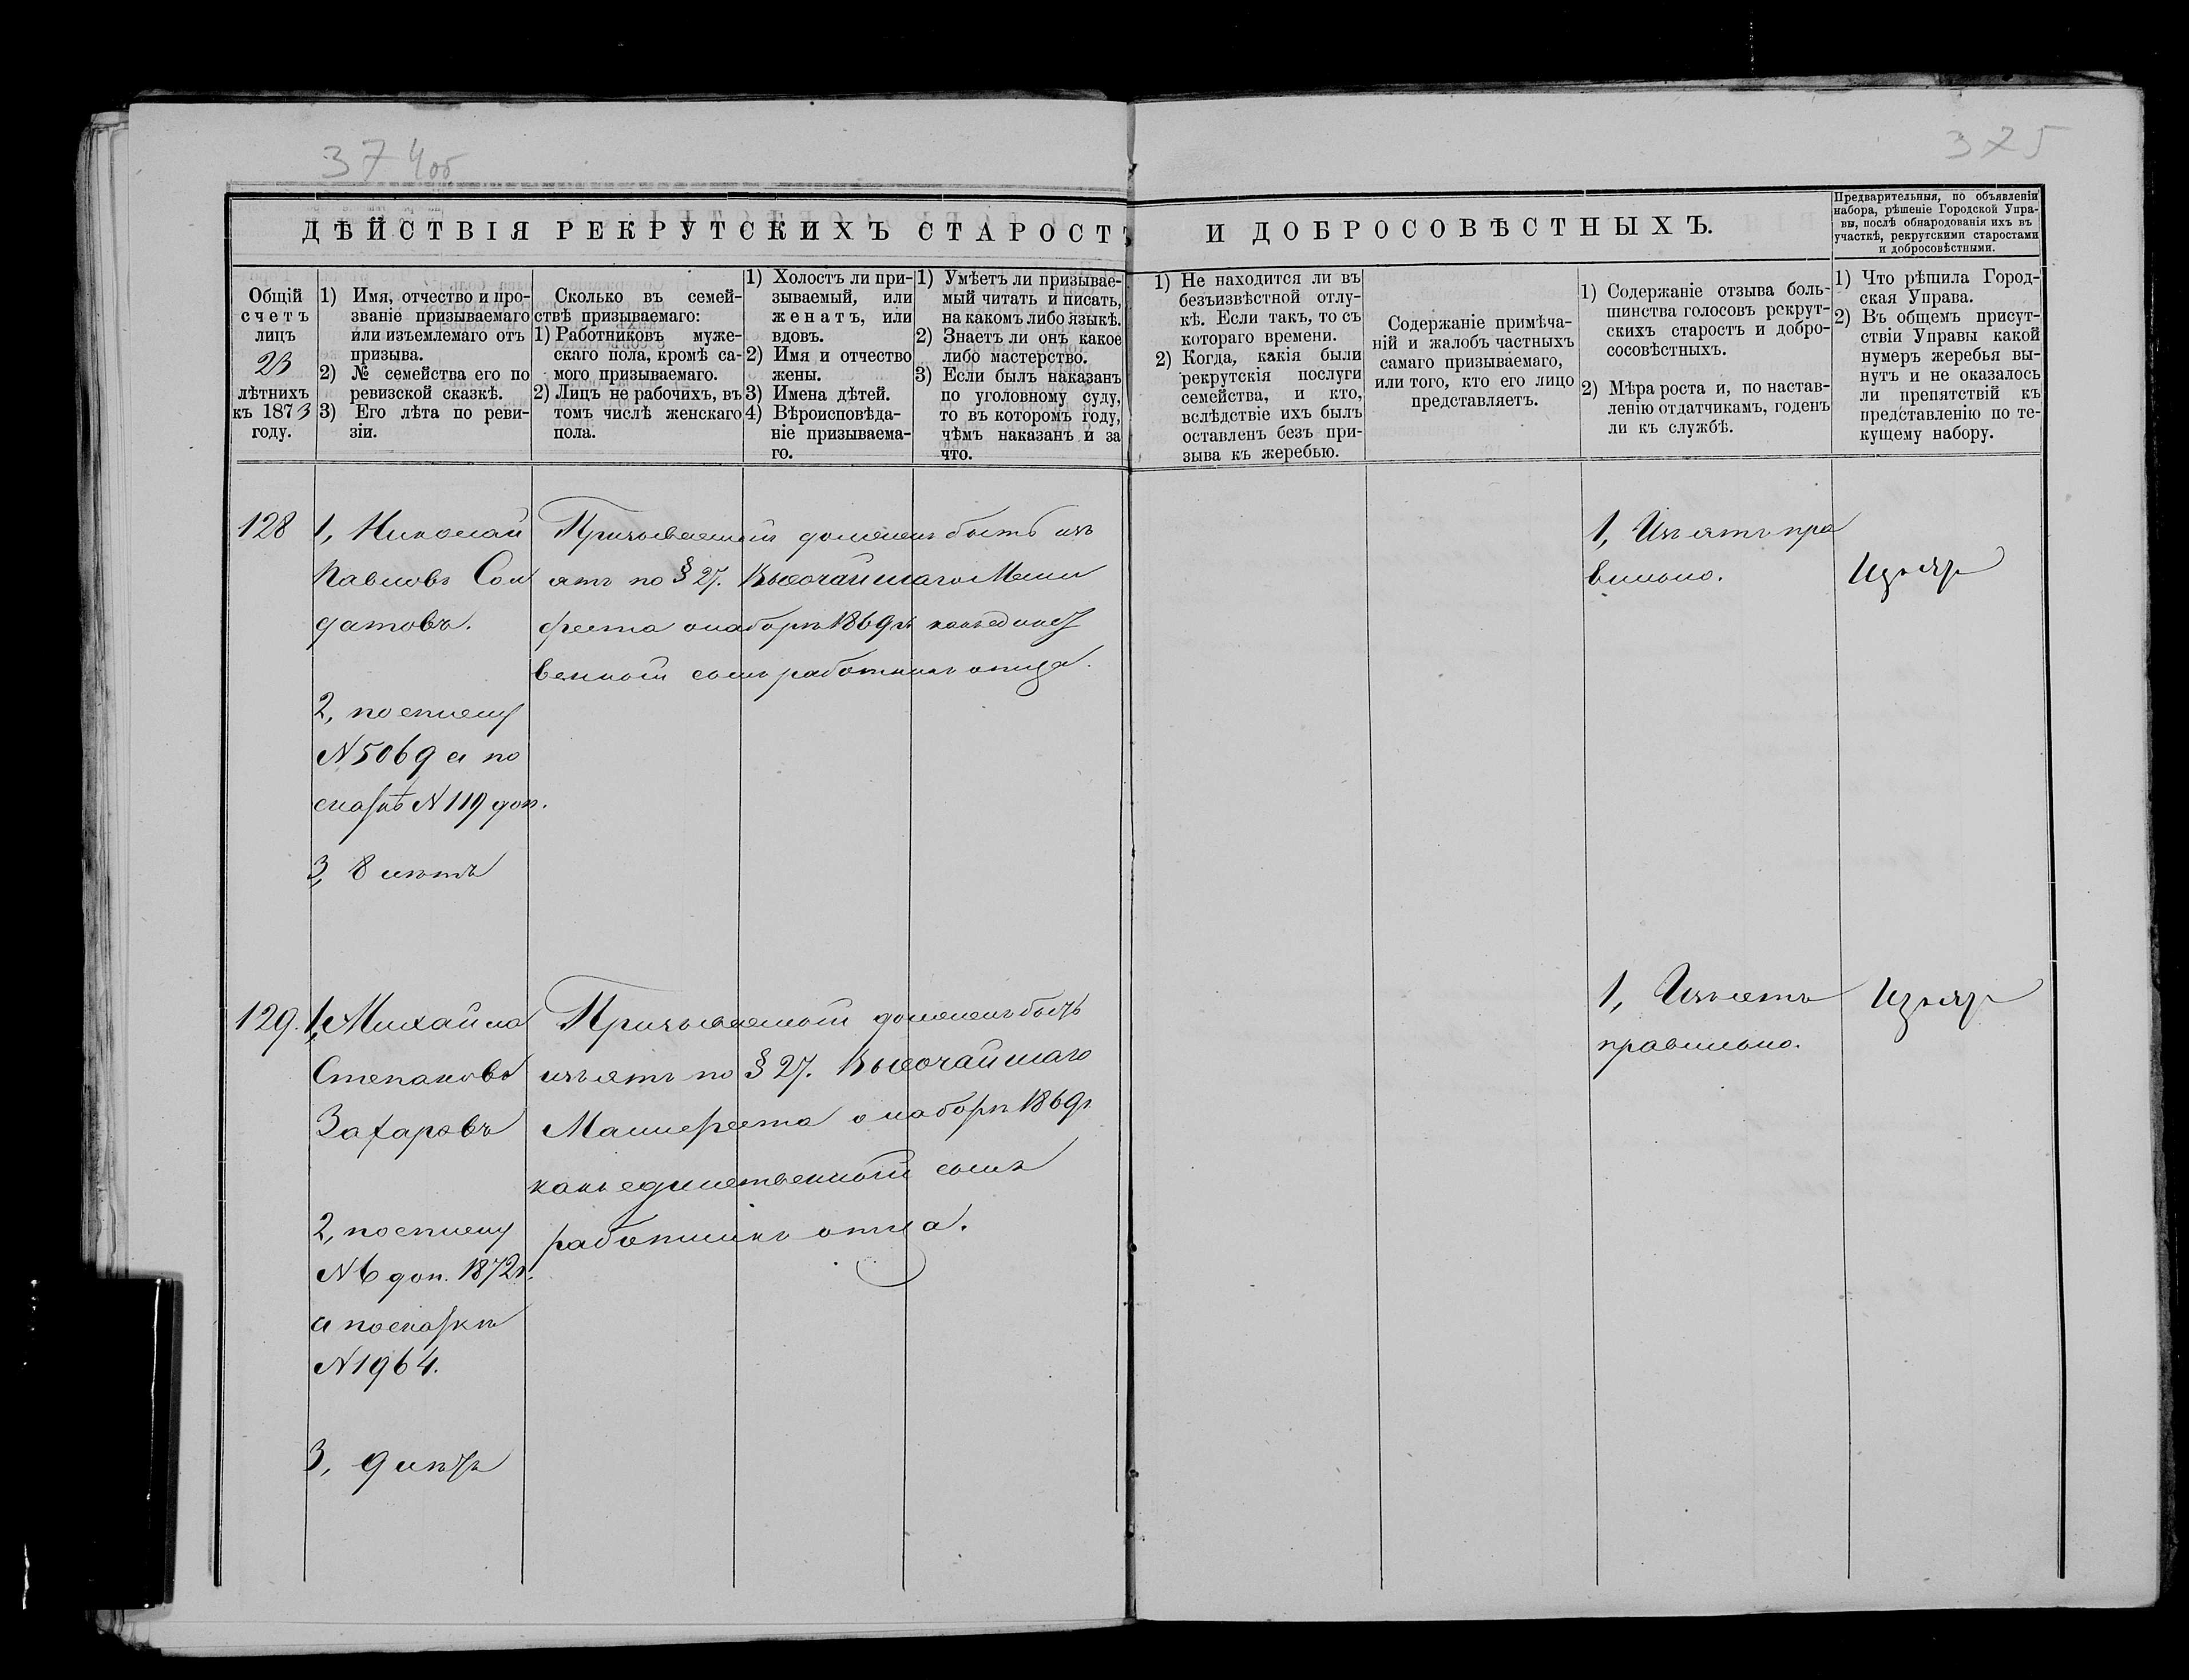 374об
375
ДѢЙСТВІЯ РЕКРУТСКИХЪ СТАРОСТЪ И ДОБРОСОВѢСТНЫХЪ.
Предварительныя, по объявленіи
набора, рѣшеніе Городской Упра-
вы, послѣ обнародованія ихъ въ
участкѣ, рекрутскими старостами
и добросовѣстными.
Общій
счетъ
лицъ
23
лѣтнихъ
къ 1873
году.
1) Имя, отчество и про-
званіе призываемаго
или изъемлемаго отъ
призыва.
2) № семейства его по
ревизской сказкѣ.
3) Его лѣта по реви-
зіи.
Сколько въ семей-
ствѣ призываемаго:
1) Работниковъ муже-
скаго пола, кромѣ са-
мого призываемаго.
2) Лицъ не рабочихъ, въ
томъ числѣ женскаго
пола.
1) Холостъ ли при-
зываемый, или
женатъ, или
вдовъ.
2) Имя и отчество
жены.
3) Имена дѣтей.
4) Вѣроисповѣда-
ніе призываема-
го.
1) Умѣетъ ли призывае-
мый читать и писать,
на какомъ либо языкѣ.
2) Знаетъ ли онъ какое
либо мастерство.
3) Если былъ наказанъ
по уголовному суду,
то въ которомъ году,
чѣмъ наказанъ и за
что.
1) Не находится ли въ
безъизвѣстной отлу-
кѣ. Если такъ, то съ
котораго времени.
2) Когда, какія были
рекрутскія послуги
семейства, и кто,
вслѣдствіе ихъ былъ
оставленъ безъ при-
зыва къ жеребью.
Содержаніе примѣча-
ній и жалобъ частныхъ
самаго призываемаго,
или того, кто его лицо
представляетъ.
1) Содержаніе отзыва боль-
шинства голосовъ рекрут-
скихъ старостъ и добро-
сосовѣстныхъ.
2) Мѣра роста и, по настав-
ленію отдатчикамъ, годенъ
ли къ службѣ.
1) Что рѣшила Город-
ская Управа.
2) Въ общемъ присут-
ствіи Управы какой
нумеръ жеребья вы-
нутъ и не оказалось
ли препятствій къ
представленію по те-
кущему набору.
128
1, Николай
Павловъ Сол
датовъ.
2, по списку
N 5069 а по
сказкѣ N 119 доп.
3, 8 лѣтъ
Призываемый долженъ быть изъ
ятъ по § 27. Высочайшаго Мани
феста о наборѣ 1869 г. какъ единст
венный сынъ работникъ отца.
1, Изъятъ пра
вильно.
Изъят
129.
1, Михайла
Степановъ
Захаровъ
2, по списку
N 6 доп. 1872 г.
а по сказкѣ
N 1964.
3, 9 лѣтъ
Призываемый долженъ быть
изъятъ по § 27. Высочайшаго
Манифеста о наборѣ 1869 г.
какъ единственный сынъ
работникъ отца.
1, Изъятъ
правильно.
Изъят